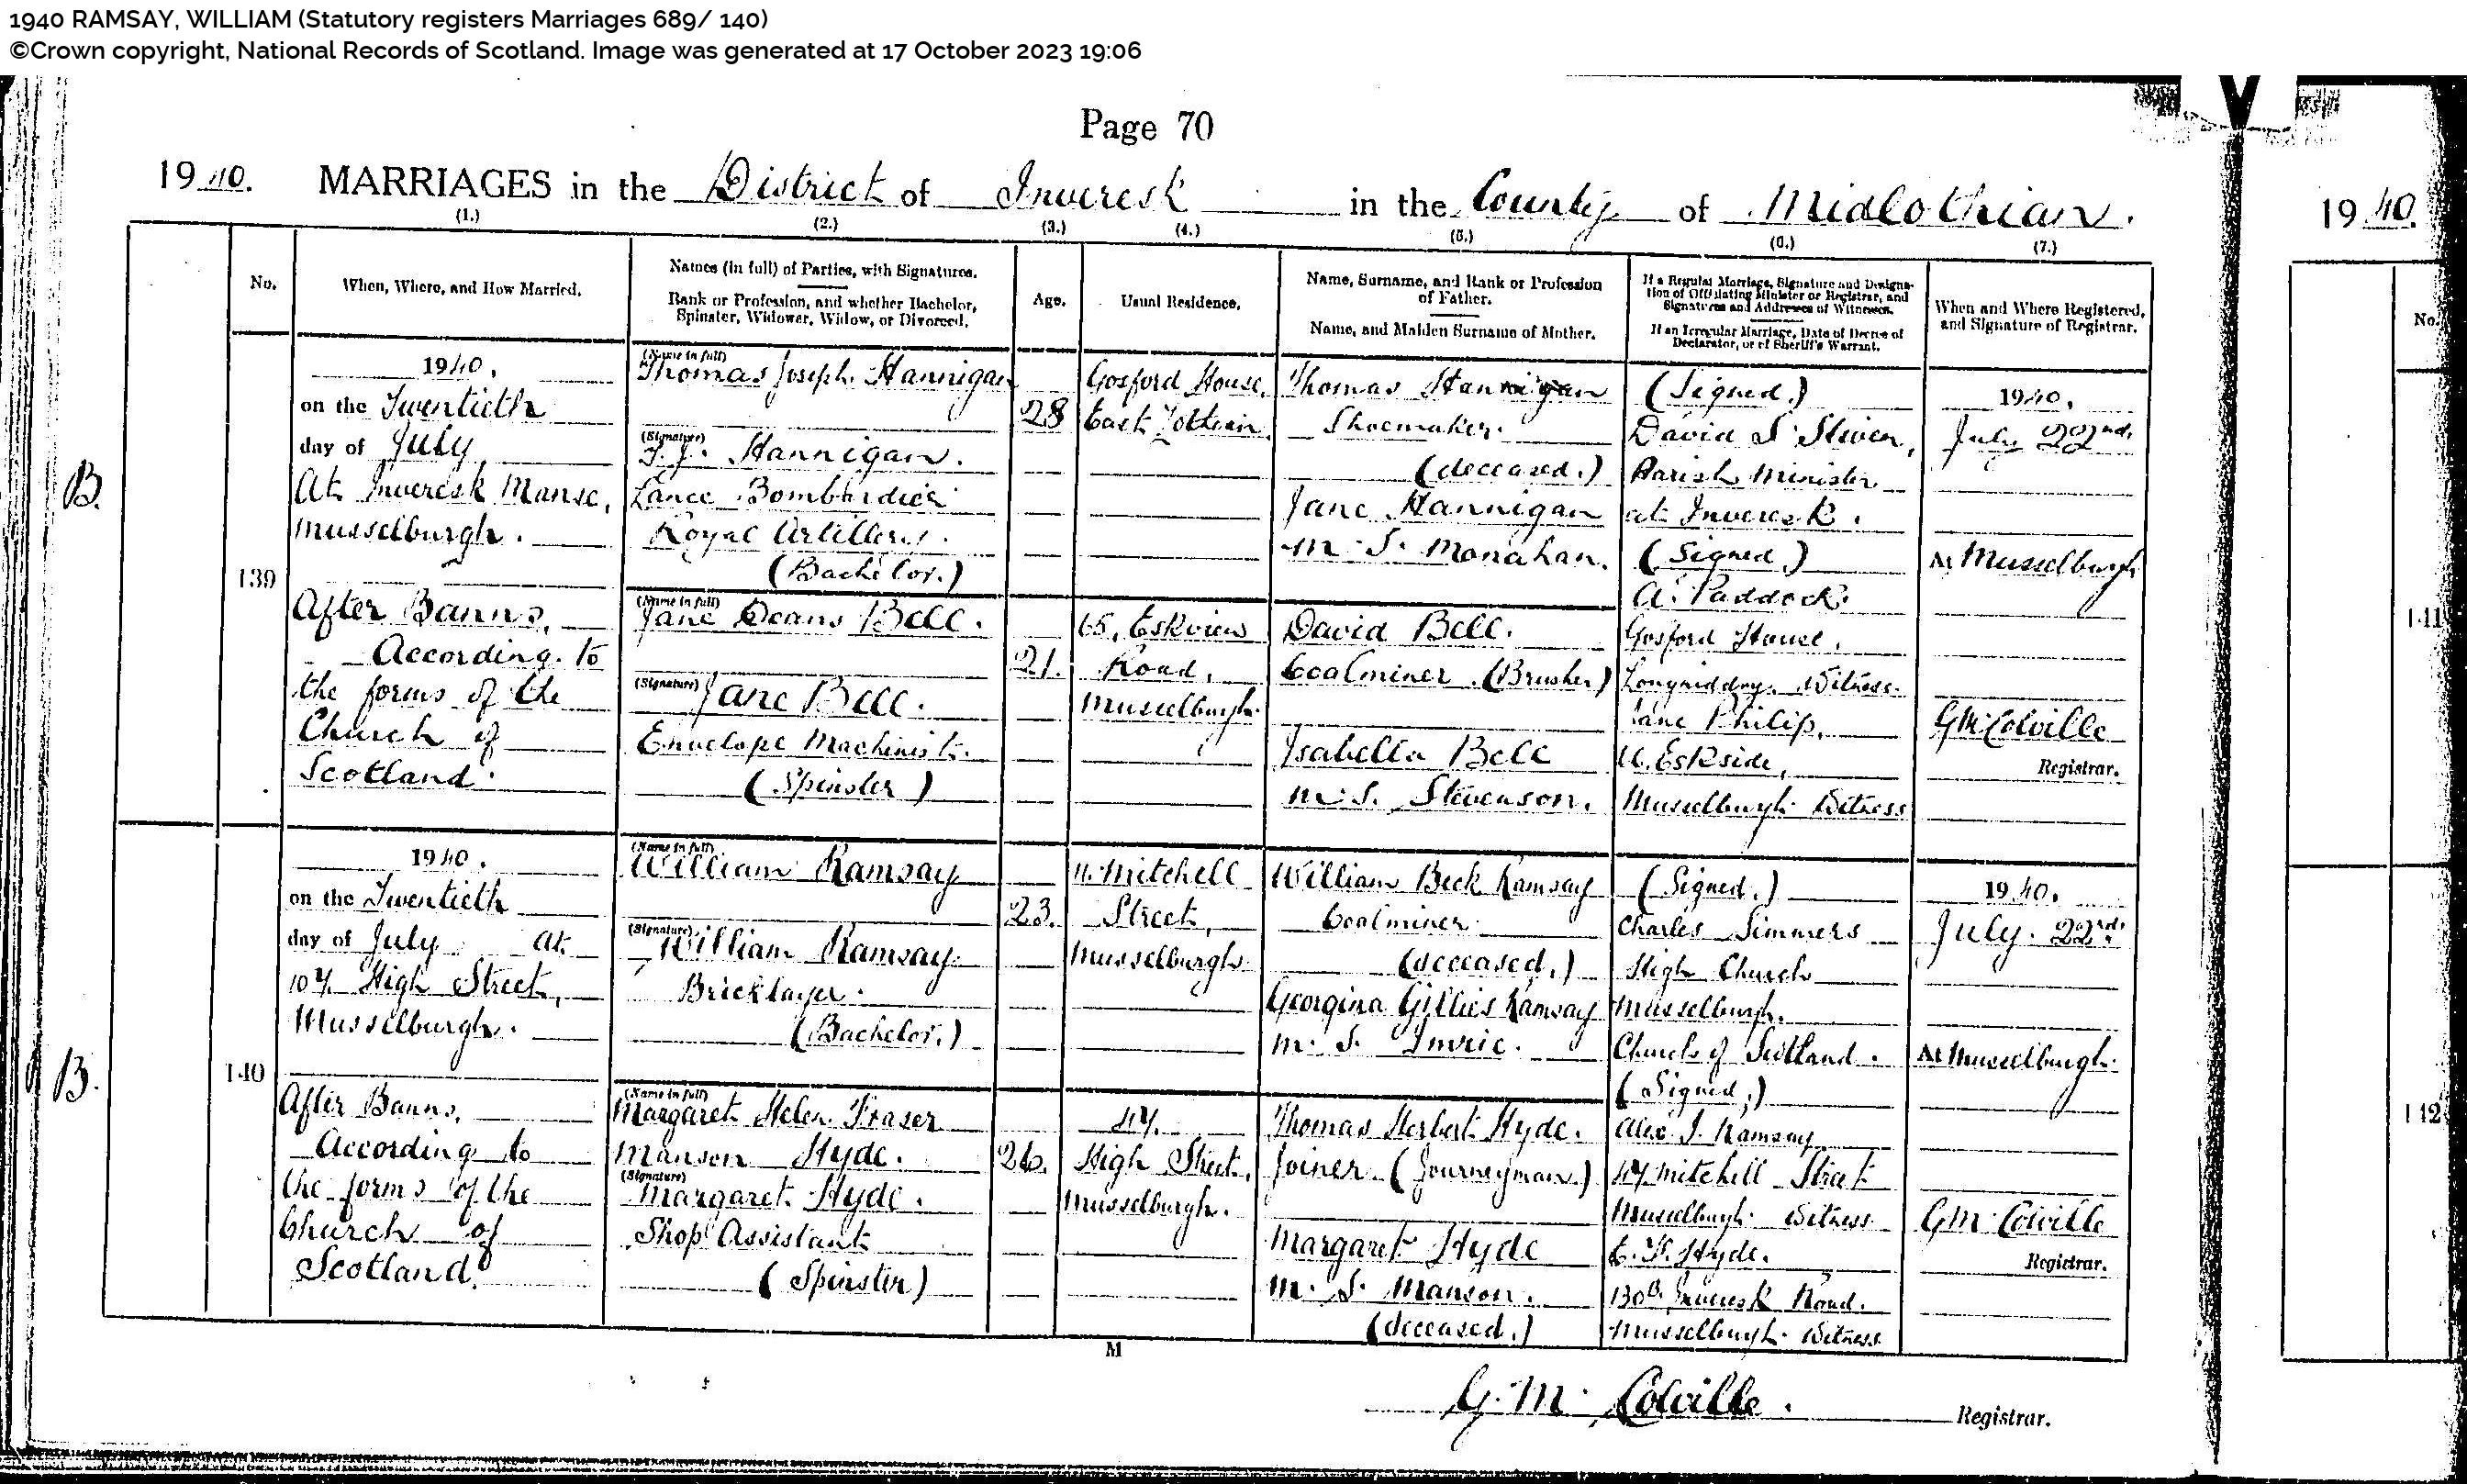 1940 RAMSAY, WILLIAM (Statutory registers Marriages 689/ 140)
©Crown copyright, National Records of Scotland. Image was generated at 17 October 2023 19:06
Page 70
1940. MARRIAGES in the District of Inveresk in the County of Midlothian.
1940.
(1.) (2.) (3.) (4.) (5.) (6.) (7.)
No.
When, Where, and How Married.
Names (in full) of Parties, with Signatures.
Rank or Profession, and whether Bachelor,
Spinster, Widower, Widow, or Divorced.
Age.
Usual Residence.
Name, Surname, and Rank or Profession
of Father.
Name, and Maiden Surname of Mother.
If a Regular Marriage, Signature and Designa-
tion of Officiating Minister or Registrar, and
Signatures and Addresses of Witnesses.
If an Irregular Marriage, Date of Decree of
Declarator, or of Sheriff's Warrant.
When and Where Registered,
and Signature of Registrar.
No.
B.
139
1940.
on the Twentieth
day of July
At Inveresk Manse,
Musselburgh.
After Banns,
According to
the forms of the
Church of
Scotland.
(Name in full)
Thomas Joseph Hannigan
(Signature)
T. J. Hannigan.
Lance Bombardier
Royal Artillery.
(Bachelor.)
28
Gosford House,
East Lothian.
Thomas Hannigan
Shoemaker.
(deceased.)
Jane Hannigan
M. S. Monahan.
(Name in full)
Jane Deans Bell.
(Signature)
Jane Bell.
Envelope Machinist.
(Spinster)
21.
65, Eskview
Road,
Musselburgh.
David Bell.
Coalminer (Brusher)
Isabella Bell
M. S. Stevenson.
(Signed.)
David S.
Parish Minister
at Inveresk.
(Signed.)
A. Paddock.
Gosford House,
Longniddry. Witness.
Jane Philip,
Eskside,
Musselburgh. Witness
1940.
July 22nd.
At Musselburgh
G M Colville
Registrar.
141
B.
140
1940.
on the Twentieth
day of July At
107 High Street,
Musselburgh.
After Banns,
According to
the forms of the
Church of
Scotland.
(Name in full)
William Ramsay
(Signature)
William Ramsay.
Bricklayer.
(Bachelor.)
23.
Mitchell
Street,
Musselburgh
William Beck Ramsay
Coalminer
(deceased.)
Georgina Gillies Ramsay
M. S. Imrie.
(Name in full)
Margaret Helen Fraser
Manson Hyde.
(Signature)
Margaret Hyde.
Shop Assistant
(Spinster)
26.
High Street,
Musselburgh.
Thomas Herbert Hyde.
Joiner (Journeyman.)
Margaret Hyde
M. S. Manson.
(deceased.)
(Signed.)
Charles Simmers
High Church
Musselburgh.
Church of Scotland.
(Signed.)
Alex J. Ramsay
Mitchell Street
Musselburgh. Witness
Hyde.
130B Inveresk Road.
Musselburgh. Witness
1940.
July. 22nd.
At Musselburgh.
G M. Colville
Registrar.
142
M
G. M. Colville.
Registrar.